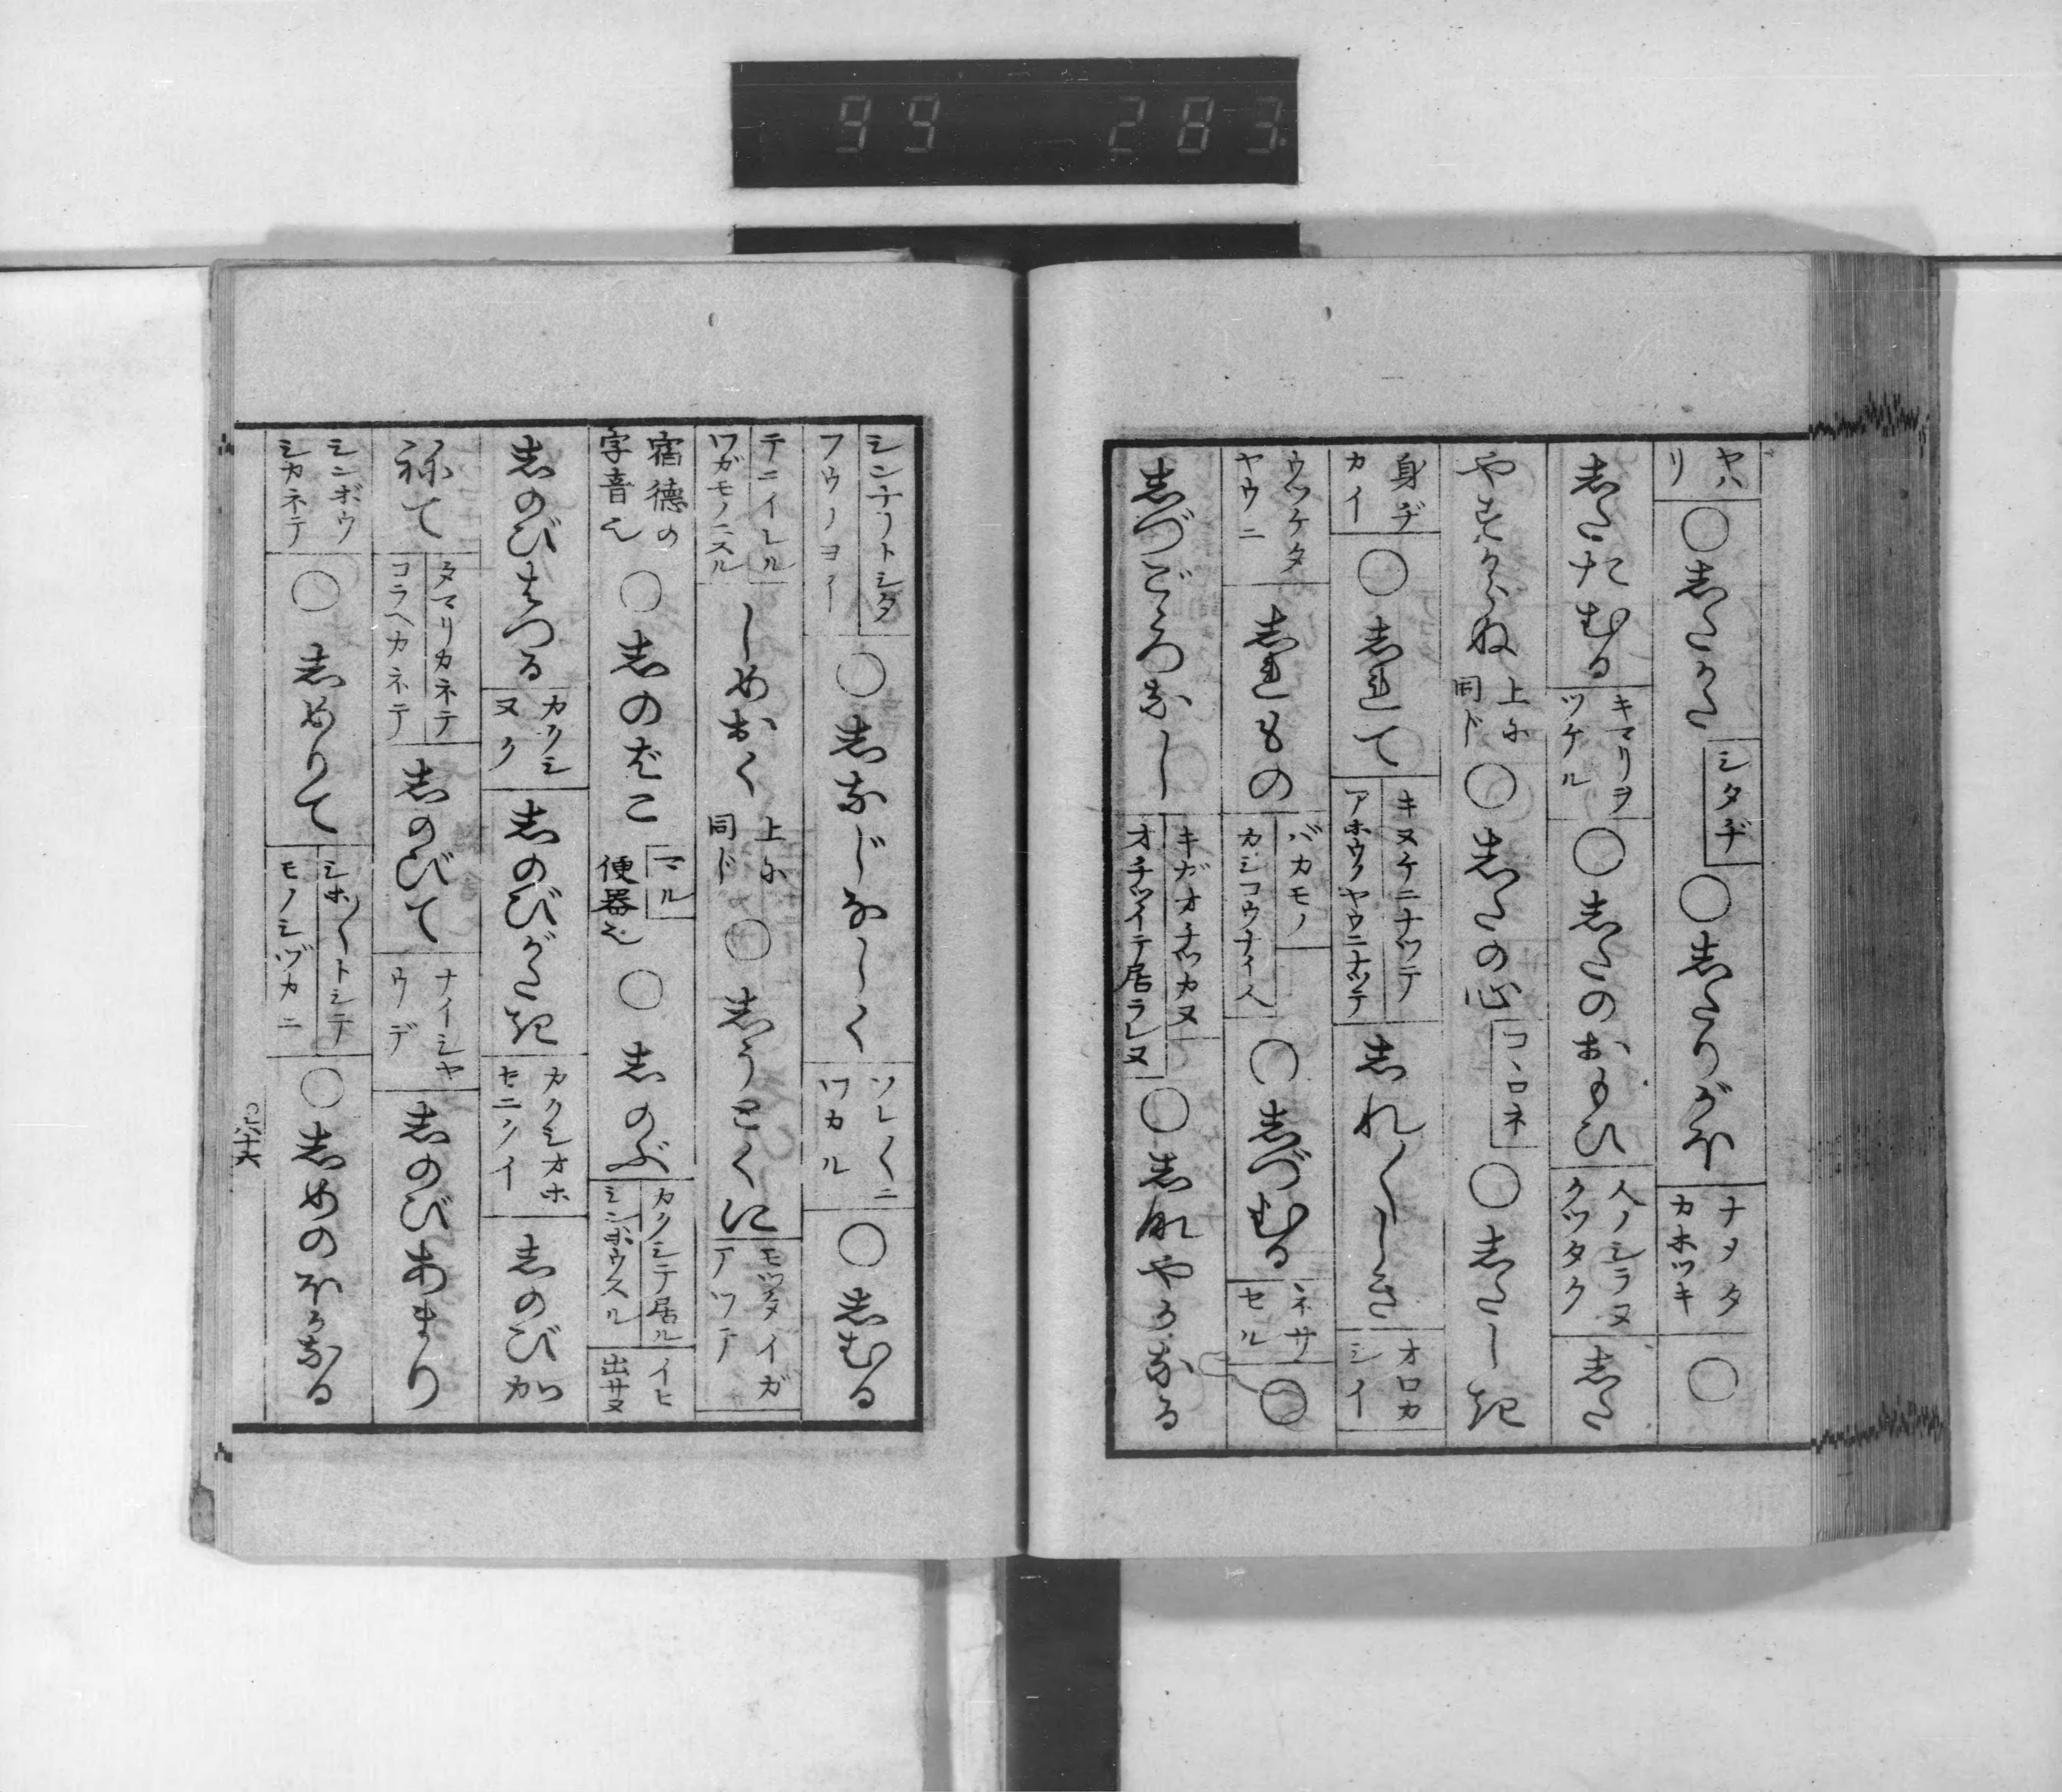 99 283
ヤハリ ○ したかた シタヂ ○ したりがほ ナヲタカホツキ ○
したたむる キマリヲツケル ○ したのおもひ 人ノシラヌクツタク した
やすからぬ 上に同ド ○ したの心 コヽロネ ○ したしき
身ヂカイ ○ しれて キヌケニナツテ アホウノヤウニナツテ しれ〳〵しき オロカシイ
ウツケタヤウニ しれもの バカモノ カシコウナイ人 ○ しづむる ネサセル ○
しづごゝろなし キガオチツカヌ オチツイテ居ラレヌ ○ しなやかなる
シンナリトシタ フウノヨイ ○ しなじなしく ソレ〳〵ニワカル ○ しむる
テニイレル ワガモノニスル しめおく 上に同ド ○ しうとくに モツタイガアツテ
宿德の字音也 ○ しのばこ マル 便器也 ○ しのぶ カクシテ居ル シンボウスル イヒ出サヌ
しのびはつる カクシヌク しのびがたき カクシオホセニクイ しのびか
ねて タマリカネテ コラヘカネテ しのびて ナイシヤウデ しのびあまり
シンボウシカネテ ○ しめりて シホ〳〵トシテ モノシヅカニ ○ しめのほかなる